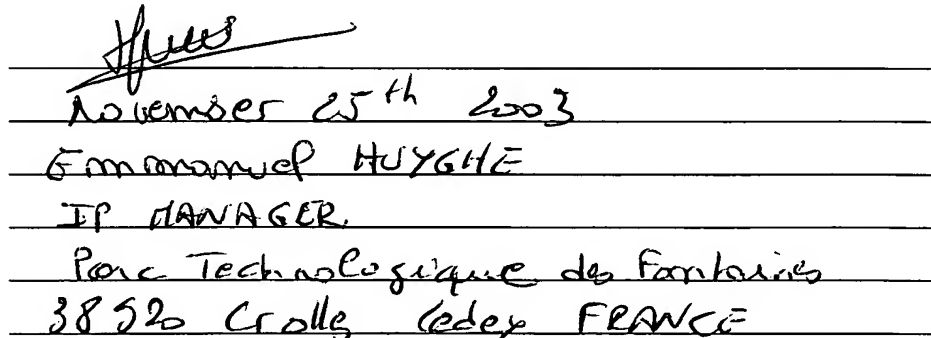 November 25th 2003
Emmanuel HUYGHE
IP MANAGER.
Parc Technologique des Fontaines
38920 Crolles Cedex FRANCE